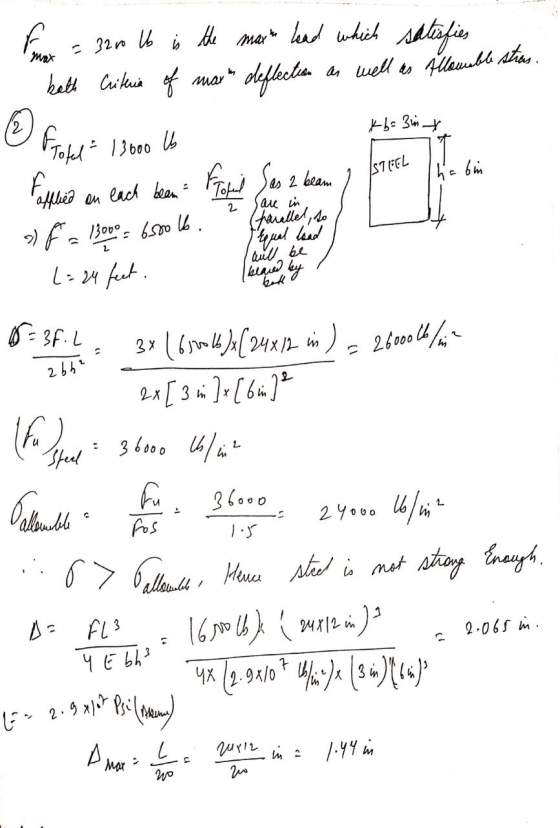 Fmax = 3200 lb is the maxm load which satisfies
both Criteria of maxm deflection as well as Allowable stress.
② FTotal = 13000 lb
Fapplied on each beam = FTotal / 2 { as 2 beam are in parallel, so Equal load will be beared by both }
=> F = 13000/2 = 6500 lb.
L = 24 feet.
b = 3 in
STEEL
h = 6 in
σ = 3F.L / 2bh² = 3 x (6500 lb) x (24x12 in) / 2 x [3 in] x [6 in]² = 26000 lb/in²
(Fu)Steel = 36000 lb/in²
σallowable = Fu/FOS = 36000/1.5 = 24000 lb/in²
∴ σ > σallowable, Hence steel is not strong Enough.
Δ = FL³ / 4Ebh³ = (6500 lb) x (24x12 in)³ / 4x (2.9x10⁷ lb/in²) x (3 in) (6 in)³ = 2.065 in.
E = 2.9 x10⁷ Psi (Assume)
Δmax = L/200 = 24x12/200 in = 1.44 in